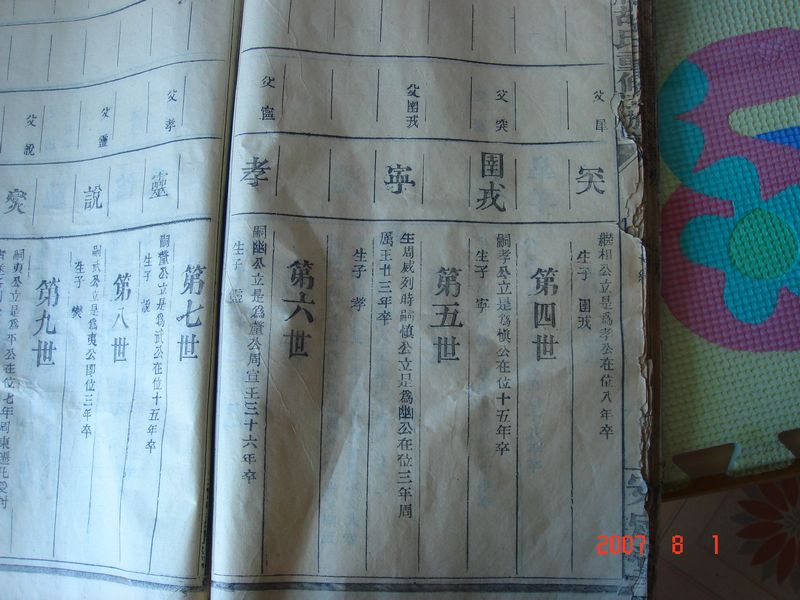 胡氏重修
父犀
父突
父圉戎
父寗
突
圉戎
寧
孝
繼相公立是爲孝公在位八年卒
生子 圉戎
第四世
嗣孝公立是爲慎公在位十五年卒
生子 寧
第五世
生周威列時嗣慎公立是爲幽公在位三年周
厲王廿三年卒
生子 孝
第六世
嗣幽公立是爲釐公周宣王三十六年卒
生子 靈
父孝
父靈
父說
靈
說
爕
第七世
嗣釐公立是爲武公在位十五年卒
生子 說
第八世
嗣武公立是爲夷公即位三年卒
生子 爕
第九世
嗣夷公立是爲平公在位七年周東遷
2007 8 1